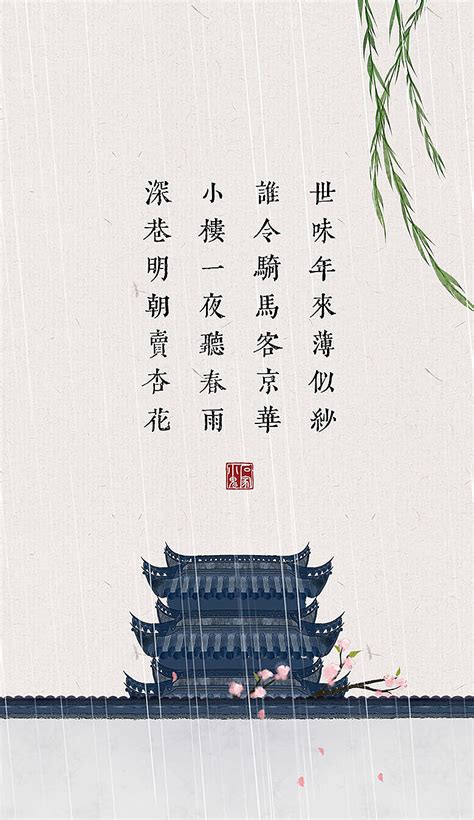 世味年來薄似紗
誰令騎馬客京華
小樓一夜聽春雨
深巷明朝賣杏花